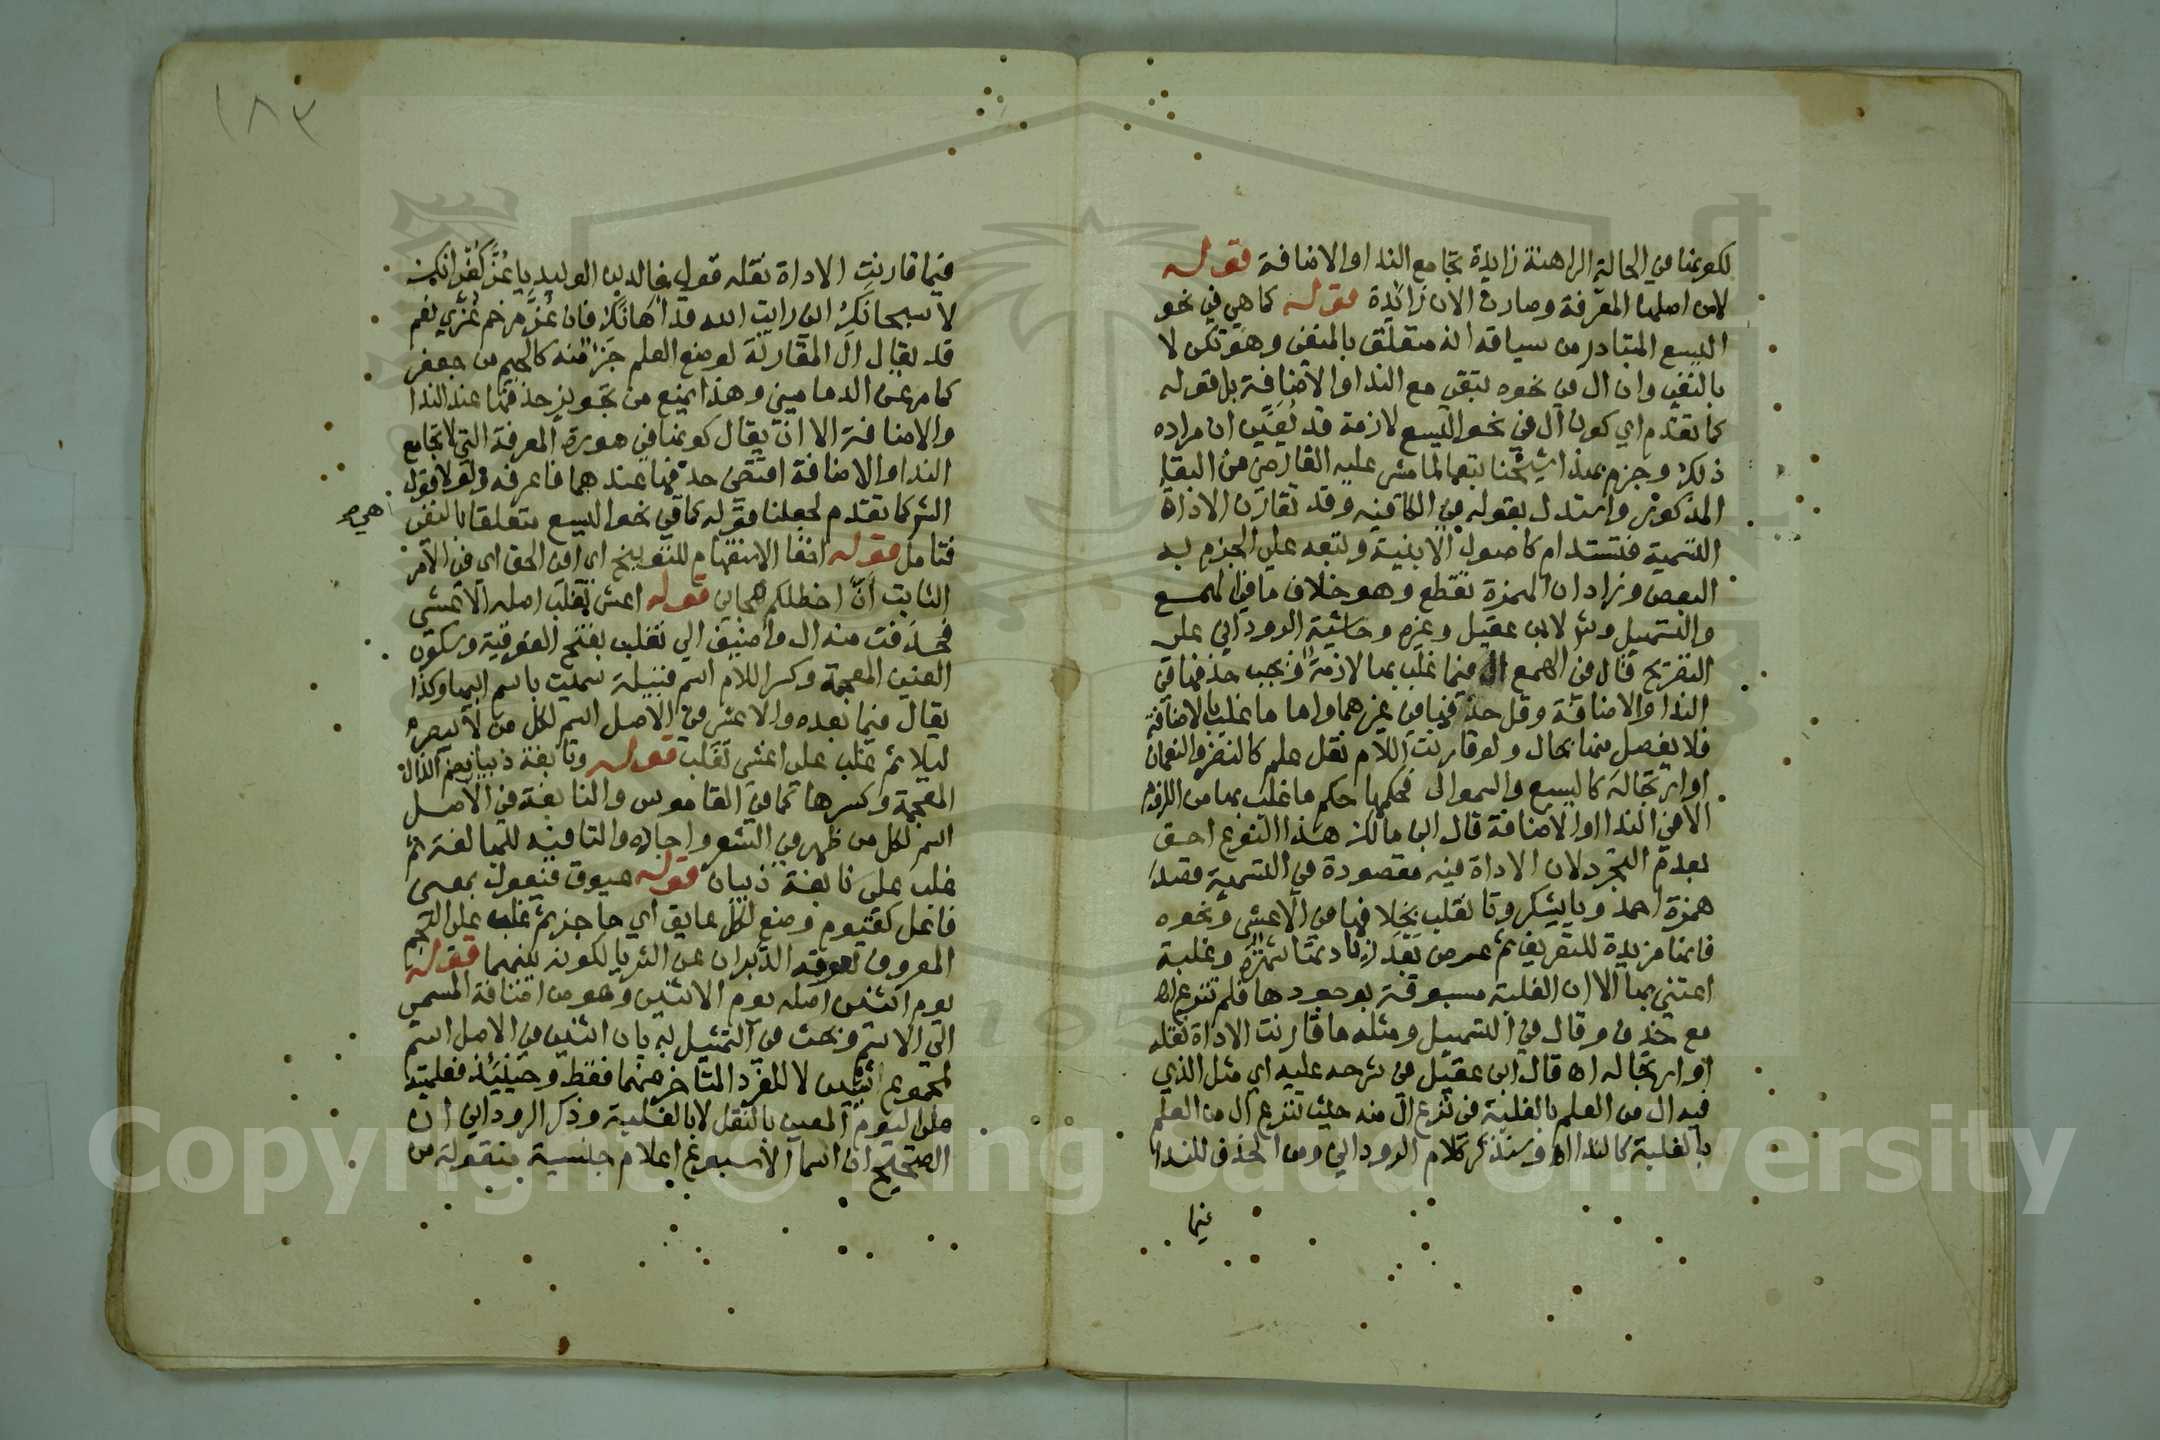 لكونها في الحالة الراهنة زايدة تجامع الندا والاضافة قوله
لان اصلها المعرفة وصارت الان زائدة قوله كما هي في نحو
اليسع المتبادر من سياقه انه متعلق بالمنفي وهو تكن لا
بالنفي وان ال في نحوه تبقى مع الندا والاضافة بل قوله
كما تقدم اي كون ال في نحو اليسع لازمة قد يعين ان مراده
ذلك وجزم بهذا شيخنا تبعا لما مشى عليه القارضي من البقا
المذكور واستدل بقوله في الكافيه وقد تقارن الاداة
التسمية فتستدام كاصول الابنية وتبعه على الجزم به
البعض وزاد ان الهمزة تقطع وهو خلاف ما في الهمع
والتسهيل وش لابن عقيل وغيره وحاشية الروداني على
التصريح قال في الهمع ال فيما غلب بها لازمة ويجب حذفها في
الندا والاضافة وقل حذفها في غيرهما واما ما غلب بالاضافة
فلا يفصل منها بحال ولو قارنت اللام نقل علم كالنضر والنعمان
او ارتجاله كاليسع والسموال فحكمها حكم ما غلب بها من اللزوم
الا في الندا او الاضافة قال ابن مالك هذا النوع احق
بعدم التجرد لان الاداة فيه مقصودة في التسمية قصد
همزة احمد ويا يشكر وتا تغلب بخلافها في الاعشى ونحوه
فانها مزيدة للتعريف ثم عرض بعد زيادتها شهرة وغلبة
اغتني بها الا ان الغلبة مسبوقة بوجودها فلم تنزع اه
مع حذف وقال في التسهيل ومثله ما قارنت الاداة نقله
او ارتجاله اه قال ابن عقيل في شرحه عليه اي مثل الذي
فيه ال من العلم بالغلبة في نزع ال منه حيث تنزع ال من العلم
بالغلبة كالندا اه وسنذكر كلام الروداني ومن الحذف للندا
فيما
١٨٣
فيما قارنت الاداة نقله قول خالد بن الوليد يا عز كفرانك
لا سبحانك اني رايت الله قد اهانك فان عز مرخم عزى نعم
قد يقال ال المقارنة لوضع العلم جزا منه كالجيم من جعفر
كما مر عن الدماميني وهذا يمنع من تجويز حذفها عند الندا
والاضافة الا ان يقال كونها في صورة المعرفة التي لا تجامع
الندا والاضافة اقتضى حذفها عندهما فاعرفه ولولا قول
الش كما تقدم لجعلنا قوله كما في نحو اليسع متعلقا بالنفي
هي صح
فتامل قوله احقا الاستفهام للتوبيخ اي افي الحق اي في الامر
الثابت ان اخطلكم هجاني قوله اعشى تغلب اصله الاعشى
فحذفت منه ال واضيف الى تغلب بفتح الفوقية وسكون
الغين المعجمة وكسر اللام اسم قبيلة سميت باسم ابيها وكذا
يقال فيما بعده والاعشى في الاصل اسم لكل من لا يبصر
ليلا ثم غلب على اعشى تغلب قوله ونابغة ذبيان بضم الذال
المعجمة وكسرها كما في القاموس والنابغة في الاصل
اسم لكل من ظهر في الشعر واجاده والتا فيه للمبالغة ثم
غلب على نابغة ذبيان قوله عيوق فيعول بمعنى
فاعل كقيوم وضع لكل عايق اي حاجز ثم غلب على النجم
المعروف لعوقه الدبران عن الثريا لكونه بينهما قوله
يوم اثنين اصله يوم الاثنين وهو من اضافة المسمى
الى الاسم وبحث في التمثيل به بان اثنين في الاصل اسم
لمجموع اثنين لا للمفرد المتاخر منهما فقط وحينئذ فعلميته
على اليوم المعين بالنقل لا بالغلبة وذكر الروداني ان
الصحيح ان اسما الاسبوع اعلام جنسية منقولة من
Copyright © King Saud University